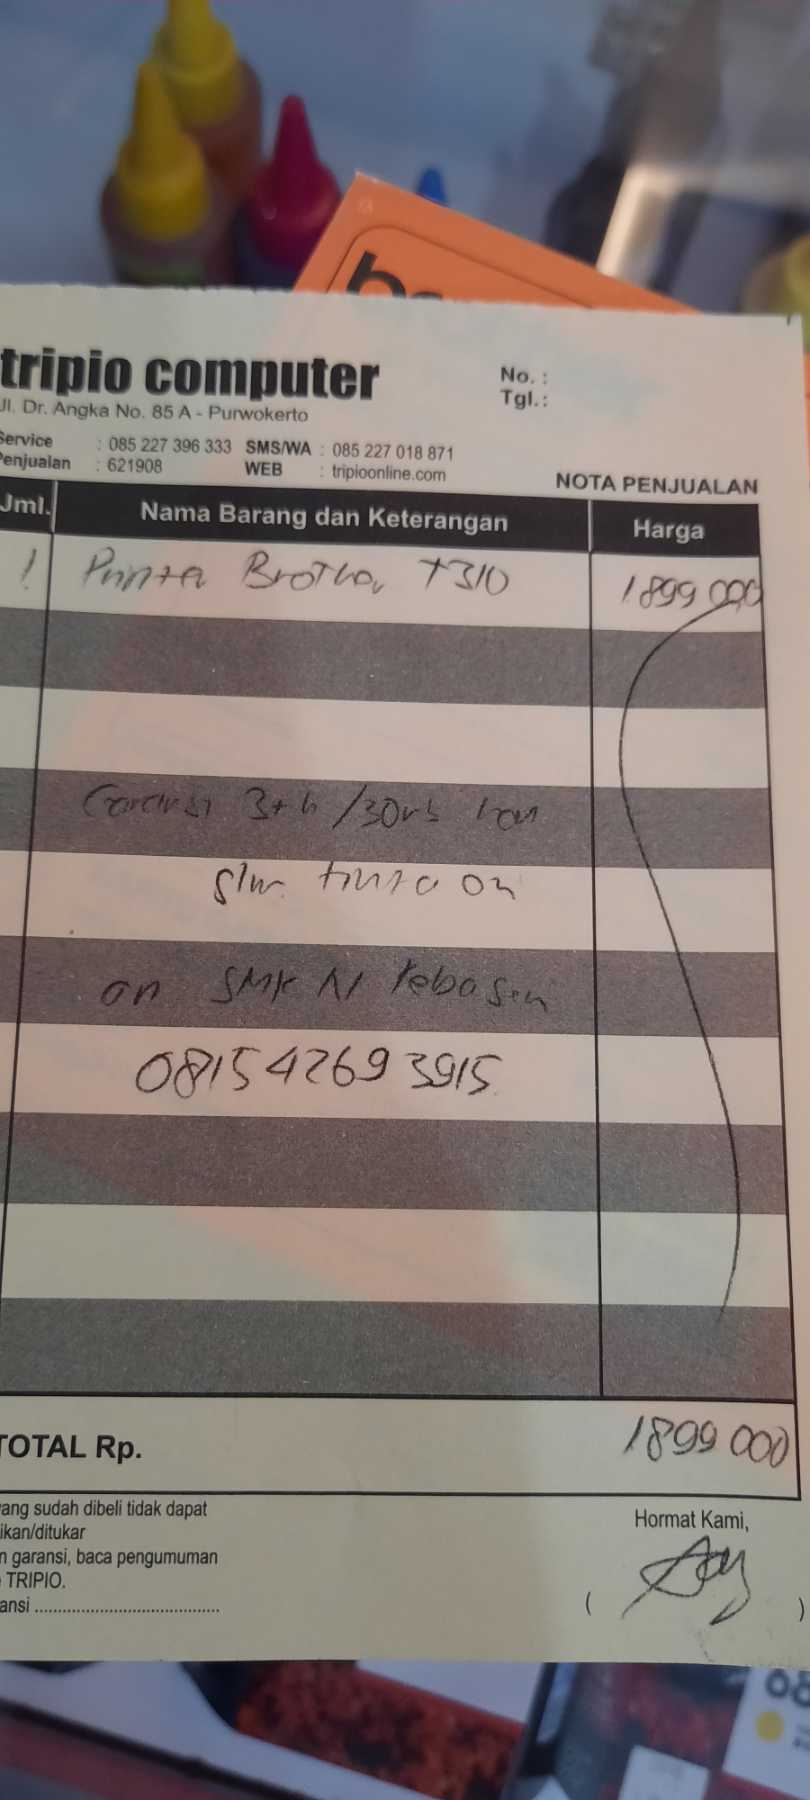 tripio computer
Jl. Dr. Angka No. 85 A - Purwokerto
No. :
Tgl. :
Service : 085 227 396 333 SMS/WA : 085 227 018 871
Penjualan : 621908 WEB : tripioonline.com
NOTA PENJUALAN
Jml. Nama Barang dan Keterangan Harga
1 Printer Brother T310 1899 000
Garansi 3th/30rb
tinta on
an SMK N Kebasen
081542693915
TOTAL Rp. 1899 000
ang sudah dibeli tidak dapat
ikan/ditukar
n garansi, baca pengumuman
TRIPIO.
ansi ........................................
Hormat Kami,
( )